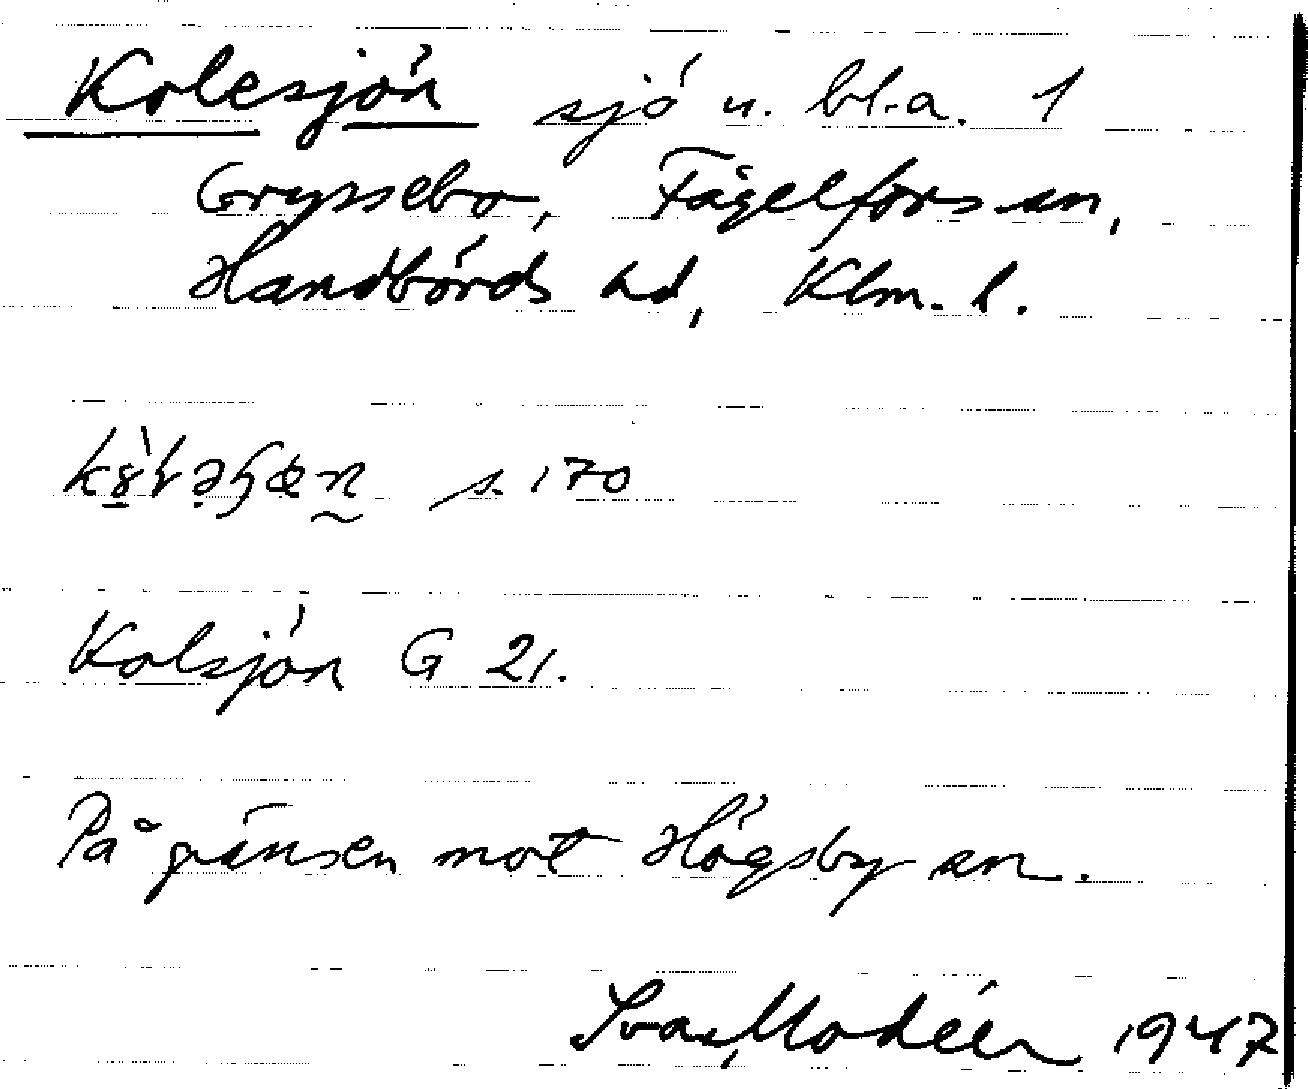 Kolesjön sjö u. bl.a. 1
Gryssebo, Fågelfors sn,
Handbörds hd, Klm. l.
s. 170
Kolsjön G 21.
På gränsen mot Högsby sn.
Modéer 1947